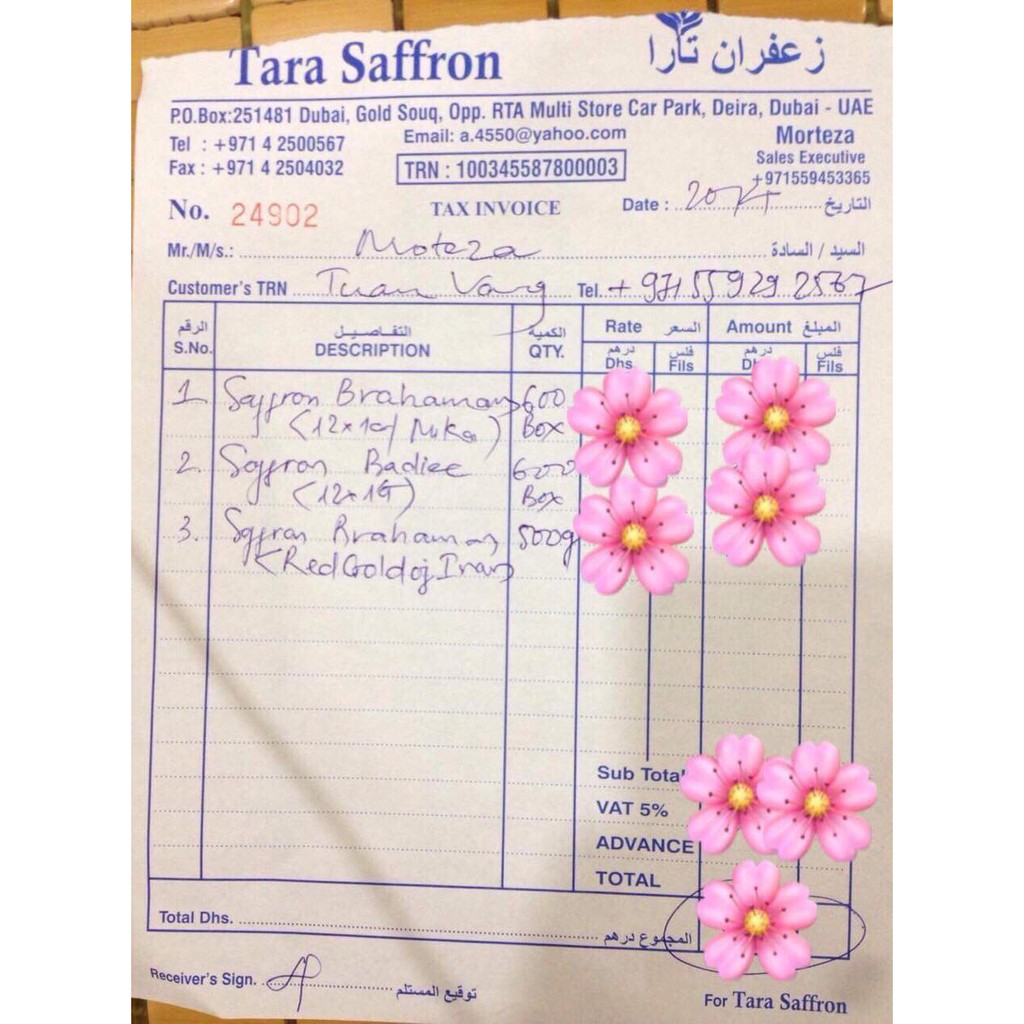 Tara Saffron زعفران تارا
P.O.Box:251481 Dubai, Gold Souq, Opp. RTA Multi Store Car Park, Deira, Dubai - UAE
Tel : +971 4 2500567 Email: a.4550@yahoo.com Morteza
Fax : +971 4 2504032 TRN : 100345587800003 Sales Executive
+971559453365
No. 24902 TAX INVOICE Date : التاريخ
Mr./M/s.: Moteza السيد / السادة:
Customer's TRN Tuan Vang Tel. + 971 55 929 2567
الرقم التفـاصـيـل الكمية Rate السعر Amount المبلغ
S.No. DESCRIPTION QTY. درهم Dhs فلس Fils درهم فلس Fils
1 Saffron Brahaman 600
(12x1g/ ) Box
2. Saffron Badiee 600
(12x1G) Box
3. Saffron Brahaman 500g
(Red Gold of Iran)
Sub Total
VAT 5%
ADVANCE
TOTAL
Total Dhs. المجموع درهم
Receiver's Sign. توقيع المستلم
For Tara Saffron